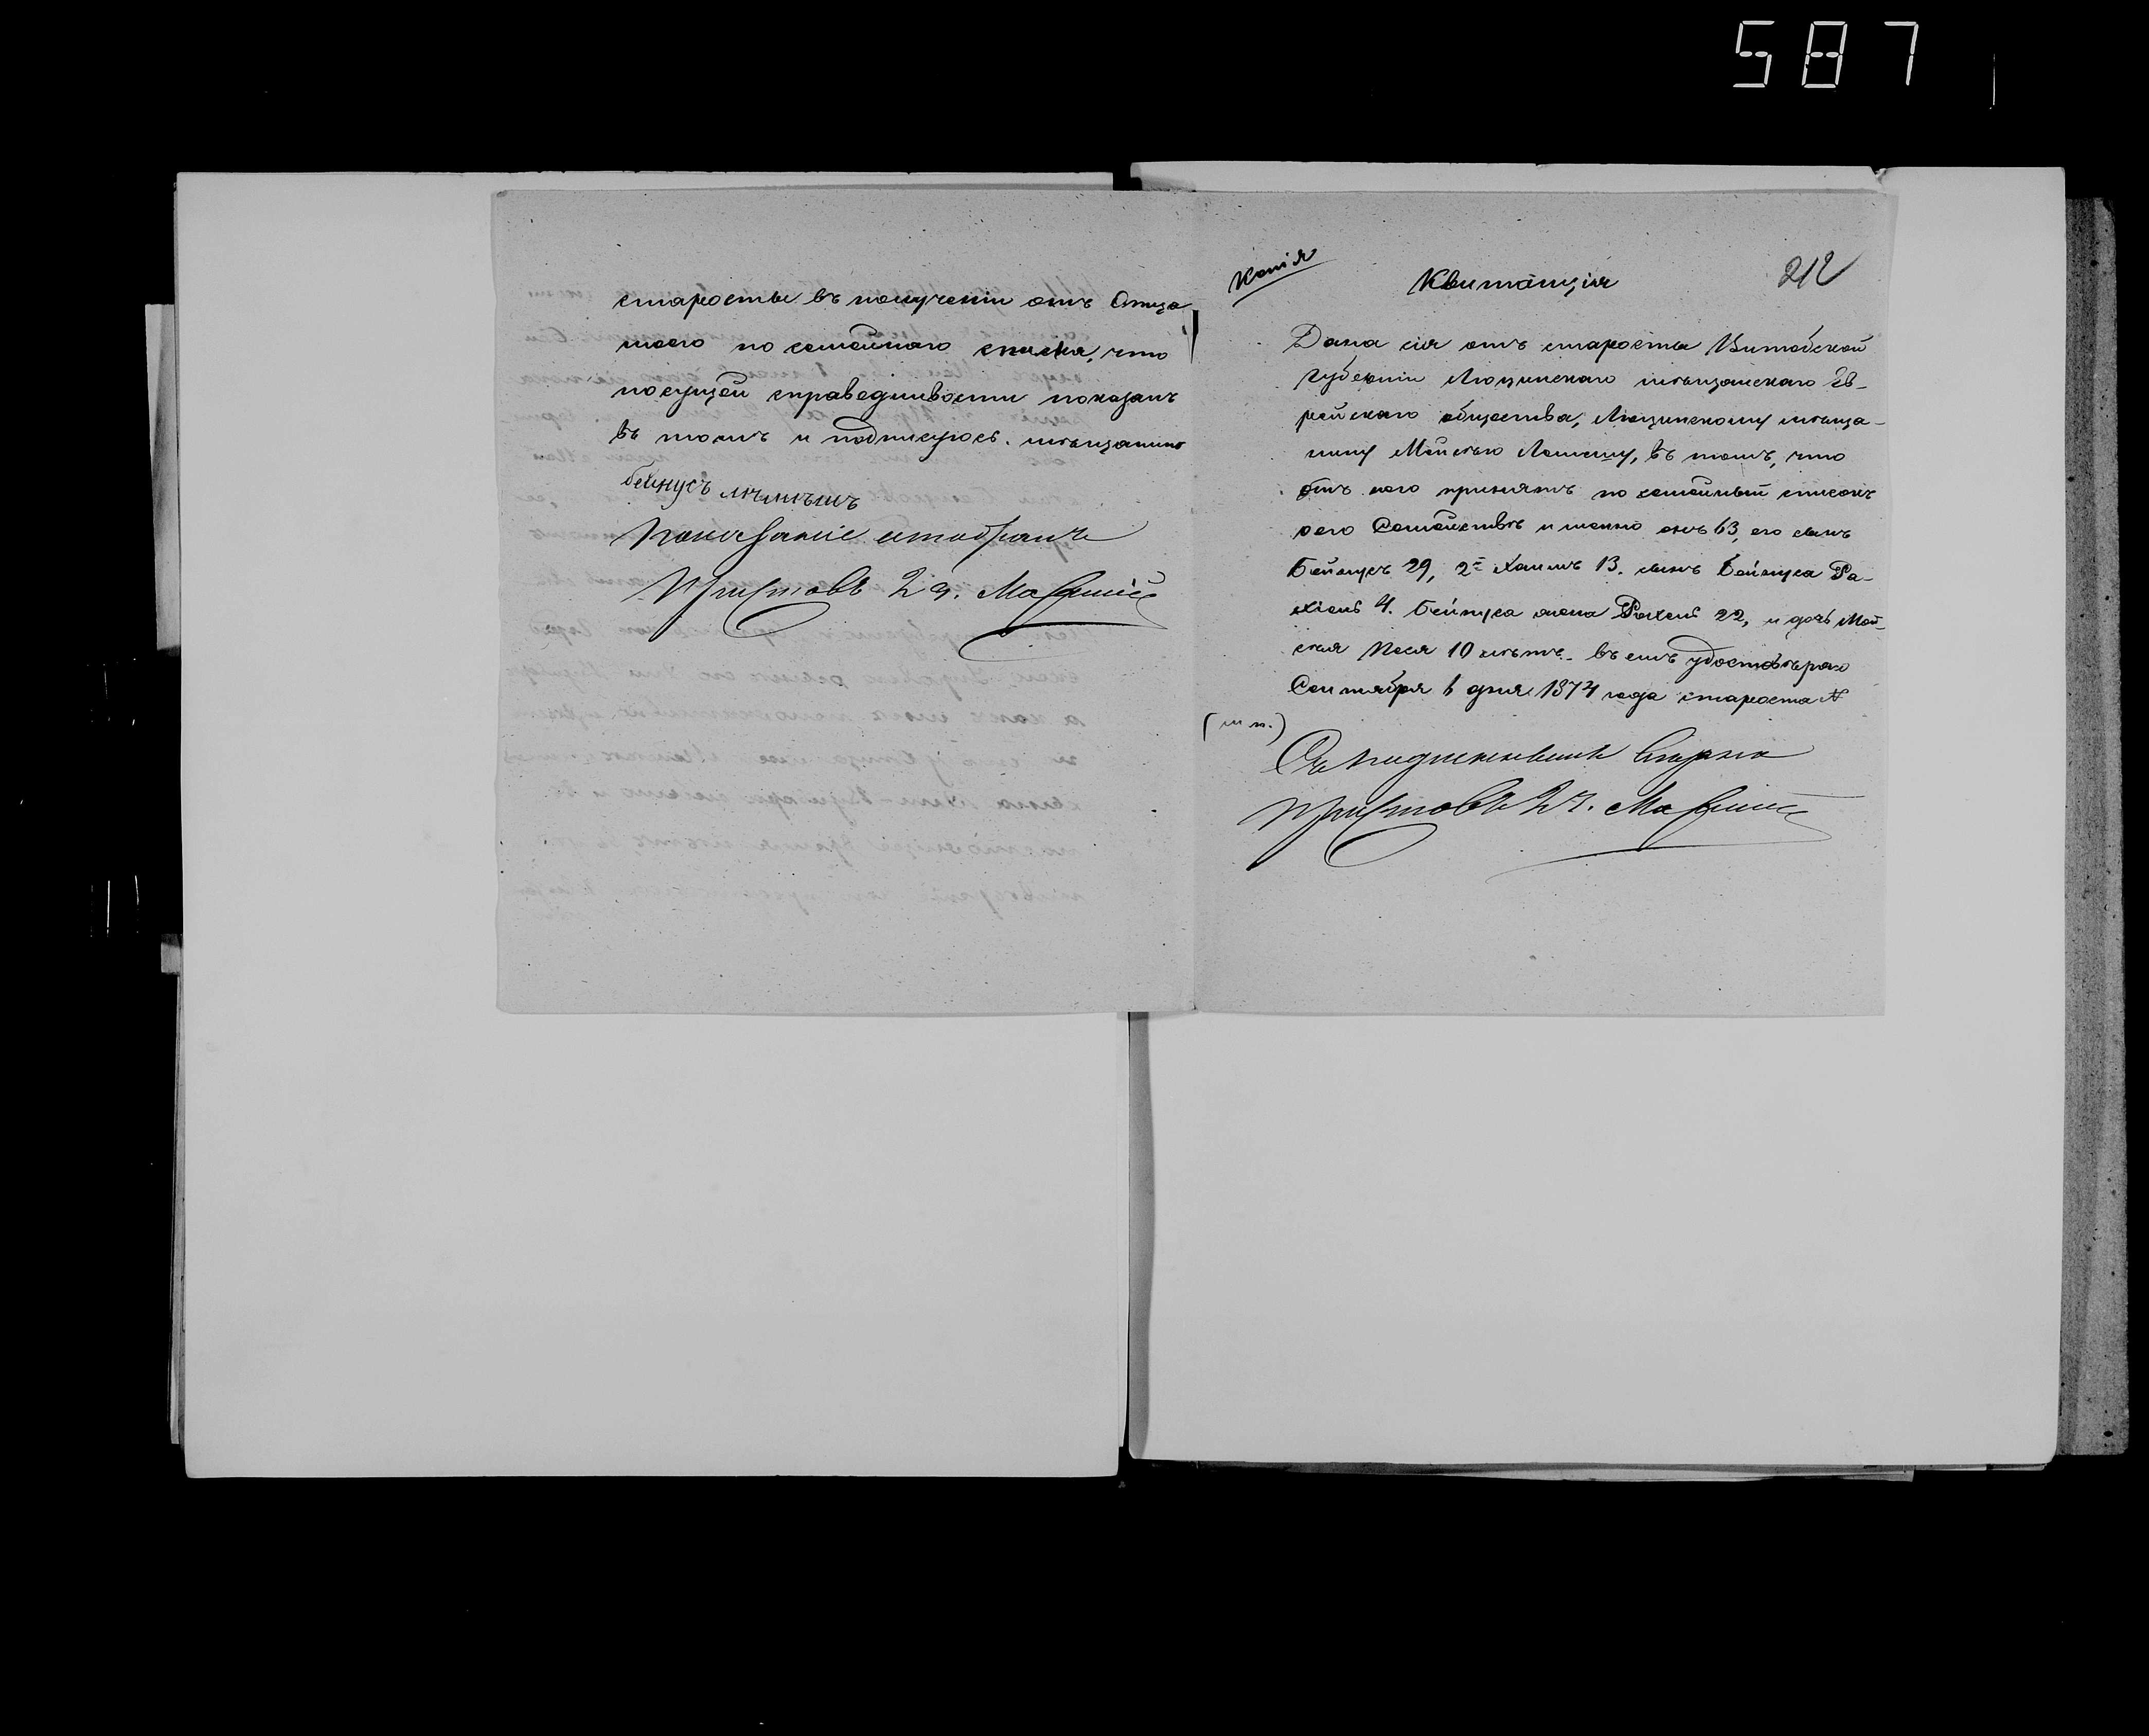 587
старосты въ полученіи отъ Отца
моего по семейнаго списка, что
посущей справедливости показалъ
въ томъ и подпишуюсь. мѣщанинъ
бейнусъ
Показаніе отобралъ
Приставъ 2 ч.
Копія
Квитанція
212
Дана сія отъ старосты Витебской
Губерніи Люцинскаго мѣщанскаго Ев-
рейскаго общества, Люцинскому мѣща-
нину Мойсѣю Лоткину, въ томъ, что
отъ него принятъ по семейный списокъ
его Семейства и именно онъ 63, его сынъ
Бейнусъ 29, 2й Хаимъ 13. сынъ Бейнуса Ра-
хіель 4. Бейнуса жена Рохель 22, и дочь Мой-
сѣя Песя 10 лѣтъ. въ емъ удостовѣряю
Сентября 6 дня 1874 года староста N
(м п.)
Съ подлиннымъ вѣрно
Приставъ 2 ч.